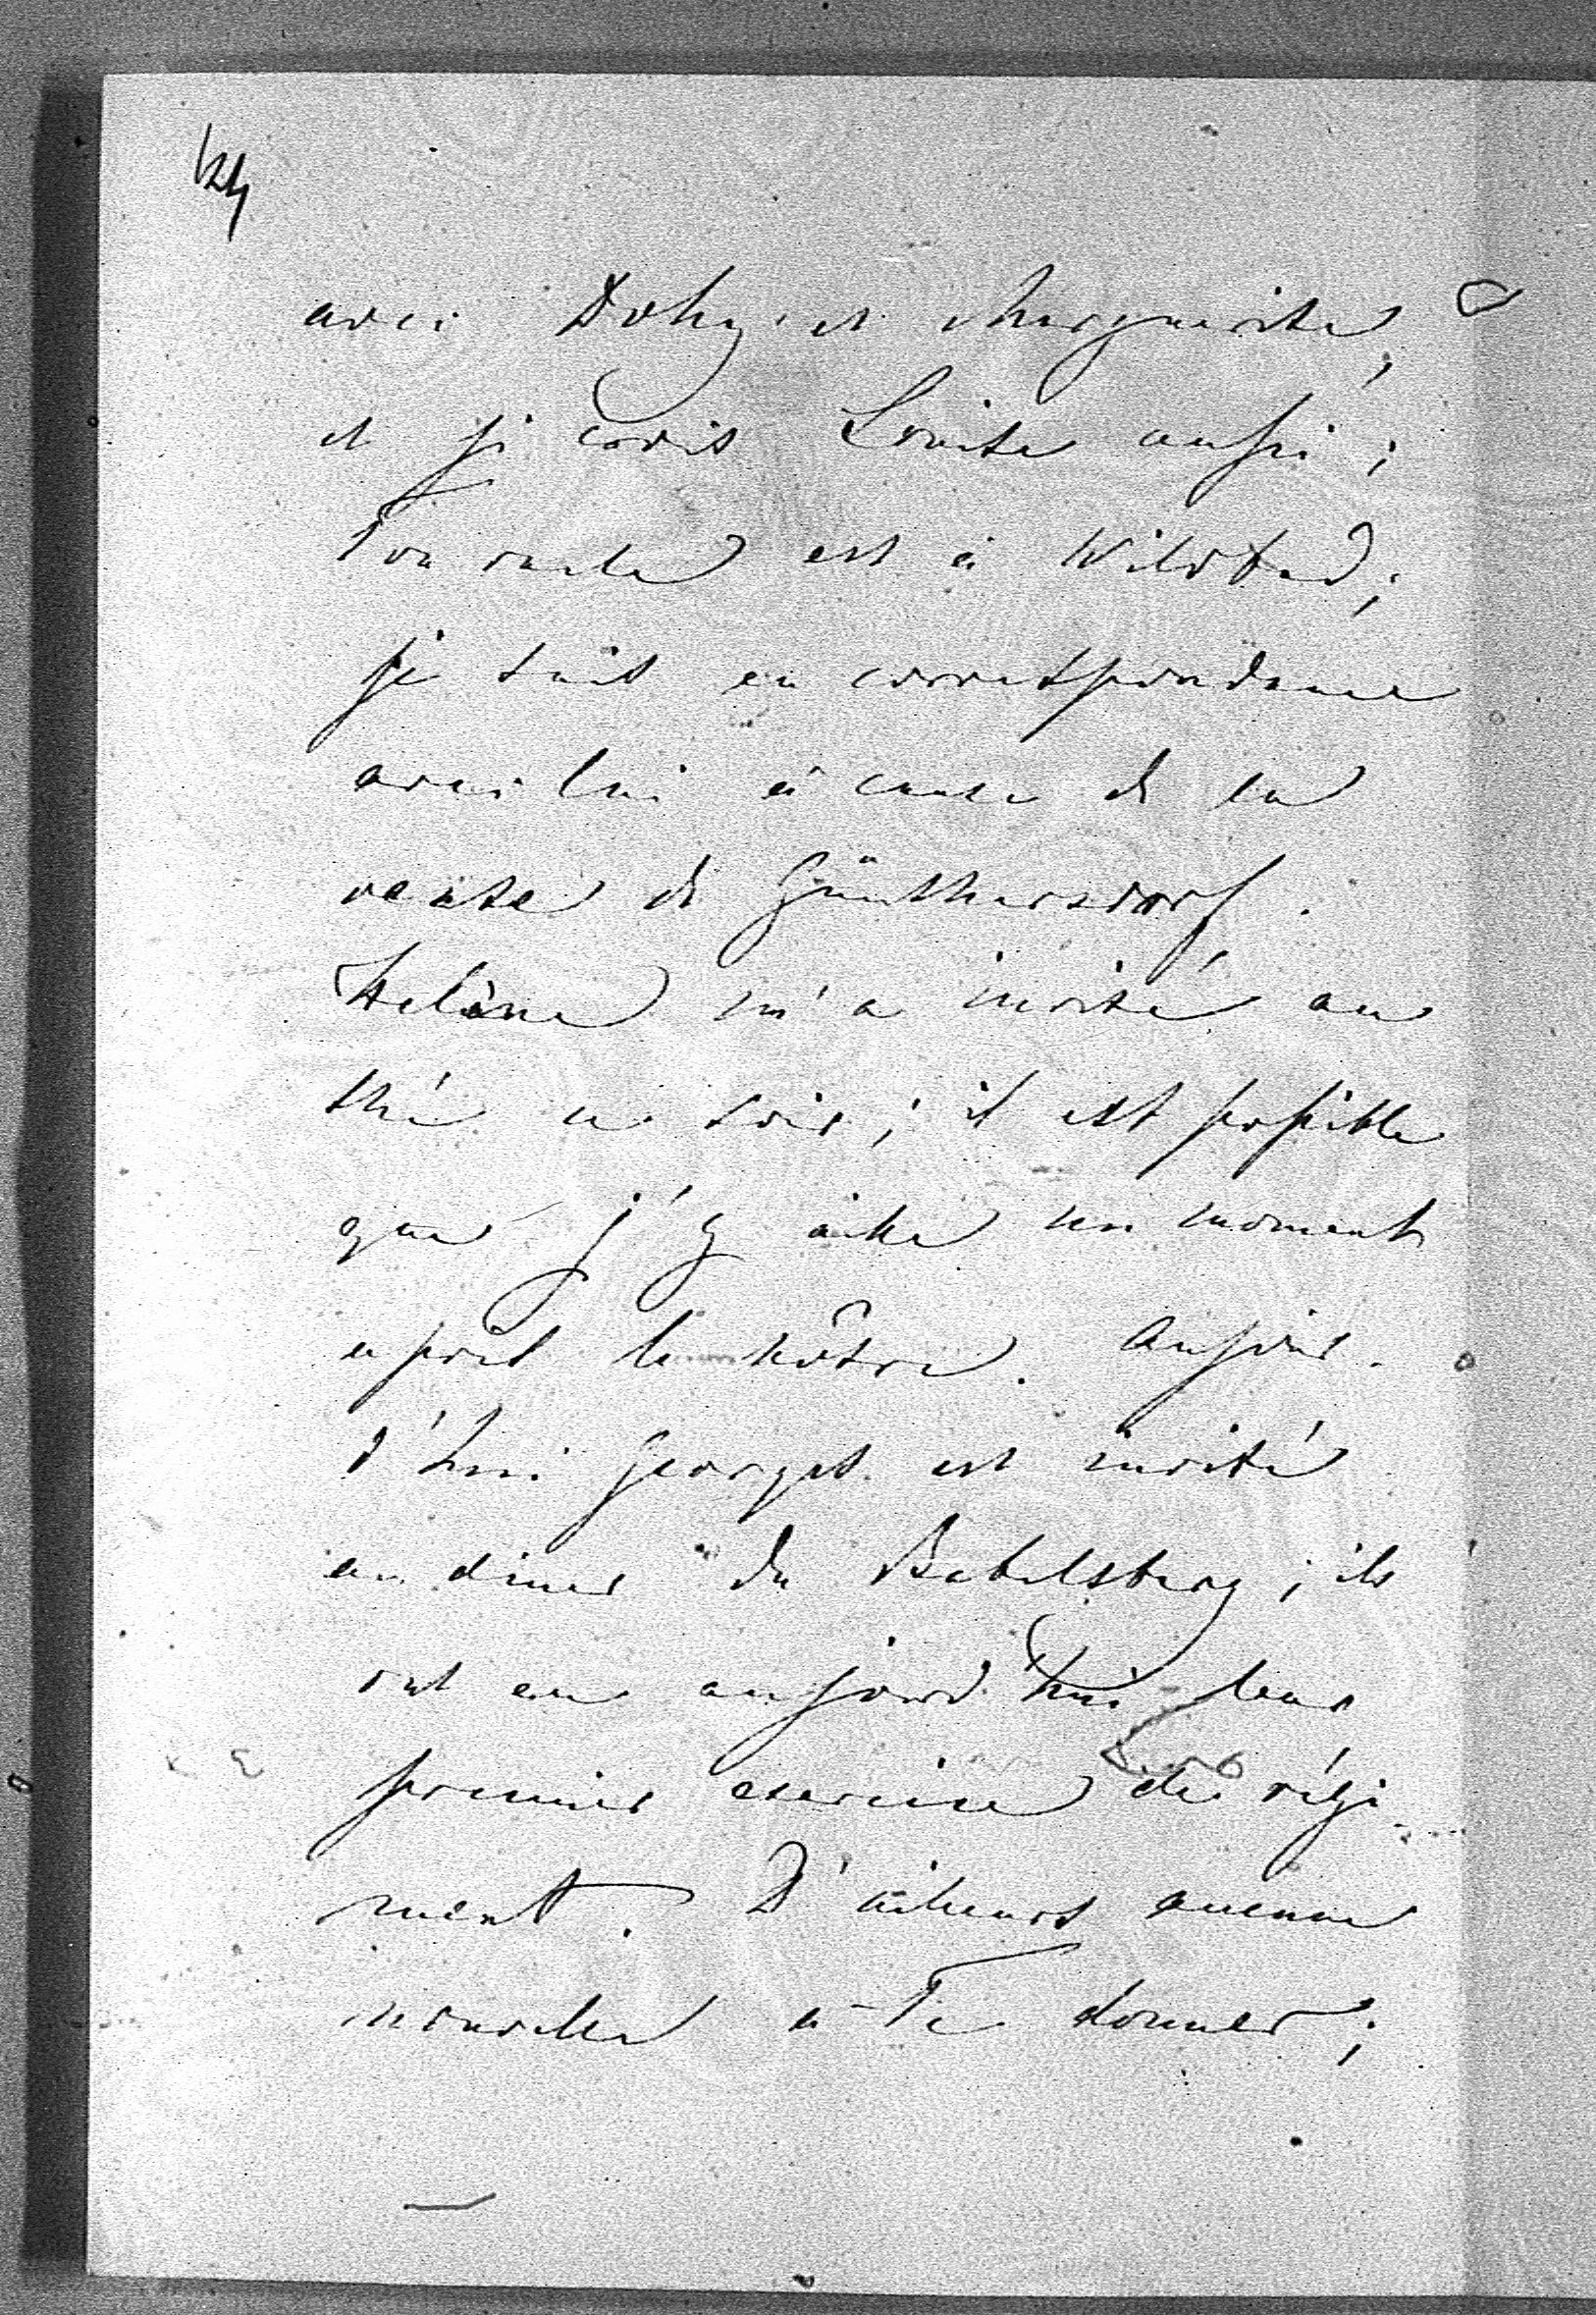 124
avec Dohy. et Marguerite,
et je crois Louise aussi;
Ton oncle est à Wildbad;
je suis en correspondance
avec lui à cause de la
vente de Günthersdorf.
Helène m'a invité au
thé ce soir; il est possible
que j'y aille un moment
après le nôtre. Aujour-
d'hui Georges est invité
au diner du Babelsberg; ils
ont eu aujourd'hui leur
premier exercice de régi-
ment. D'ailleurs aucune
nouvelle à Te donner;